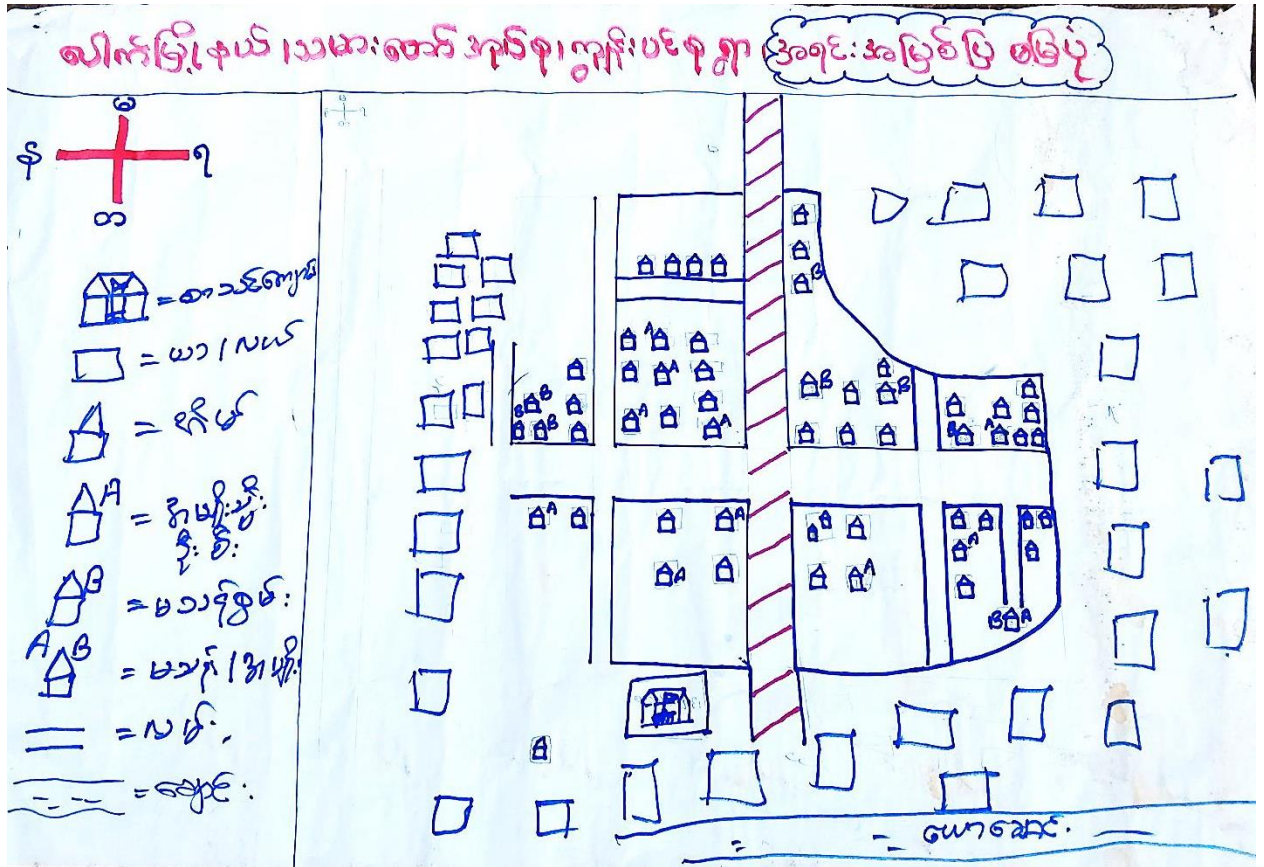 ပေါက်မြို့နယ်၊သမားတော်အုပ်စု၊ကျွန်းပင်စုရွာ၊ အရင်းအမြစ်ပြ မြေပုံ
မ
န
ရ
တ
= စာသင်ကျောင်း
= ယာ / လယ်
= အိမ်
A
= အမျိုးသမီး
ဦးစီး
B
= မသန်စွမ်း
A B
= မသန် / အမျိုး
= လမ်း
= ချောင်း
B
A
A
B
B
B
B
B
A
A
A
B
A
A
A
B
A
A
A
A
B
A
ယောချောင်း